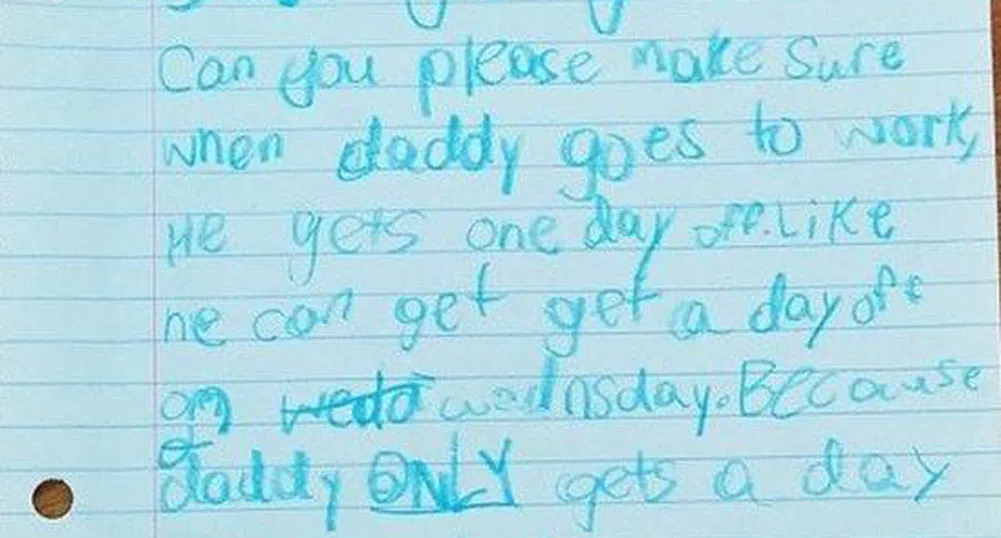 Can you please make sure
when daddy goes to work,
He gets one day off. Like
he can get get a day off
on wednsday. Because
daddy ONLY gets a day